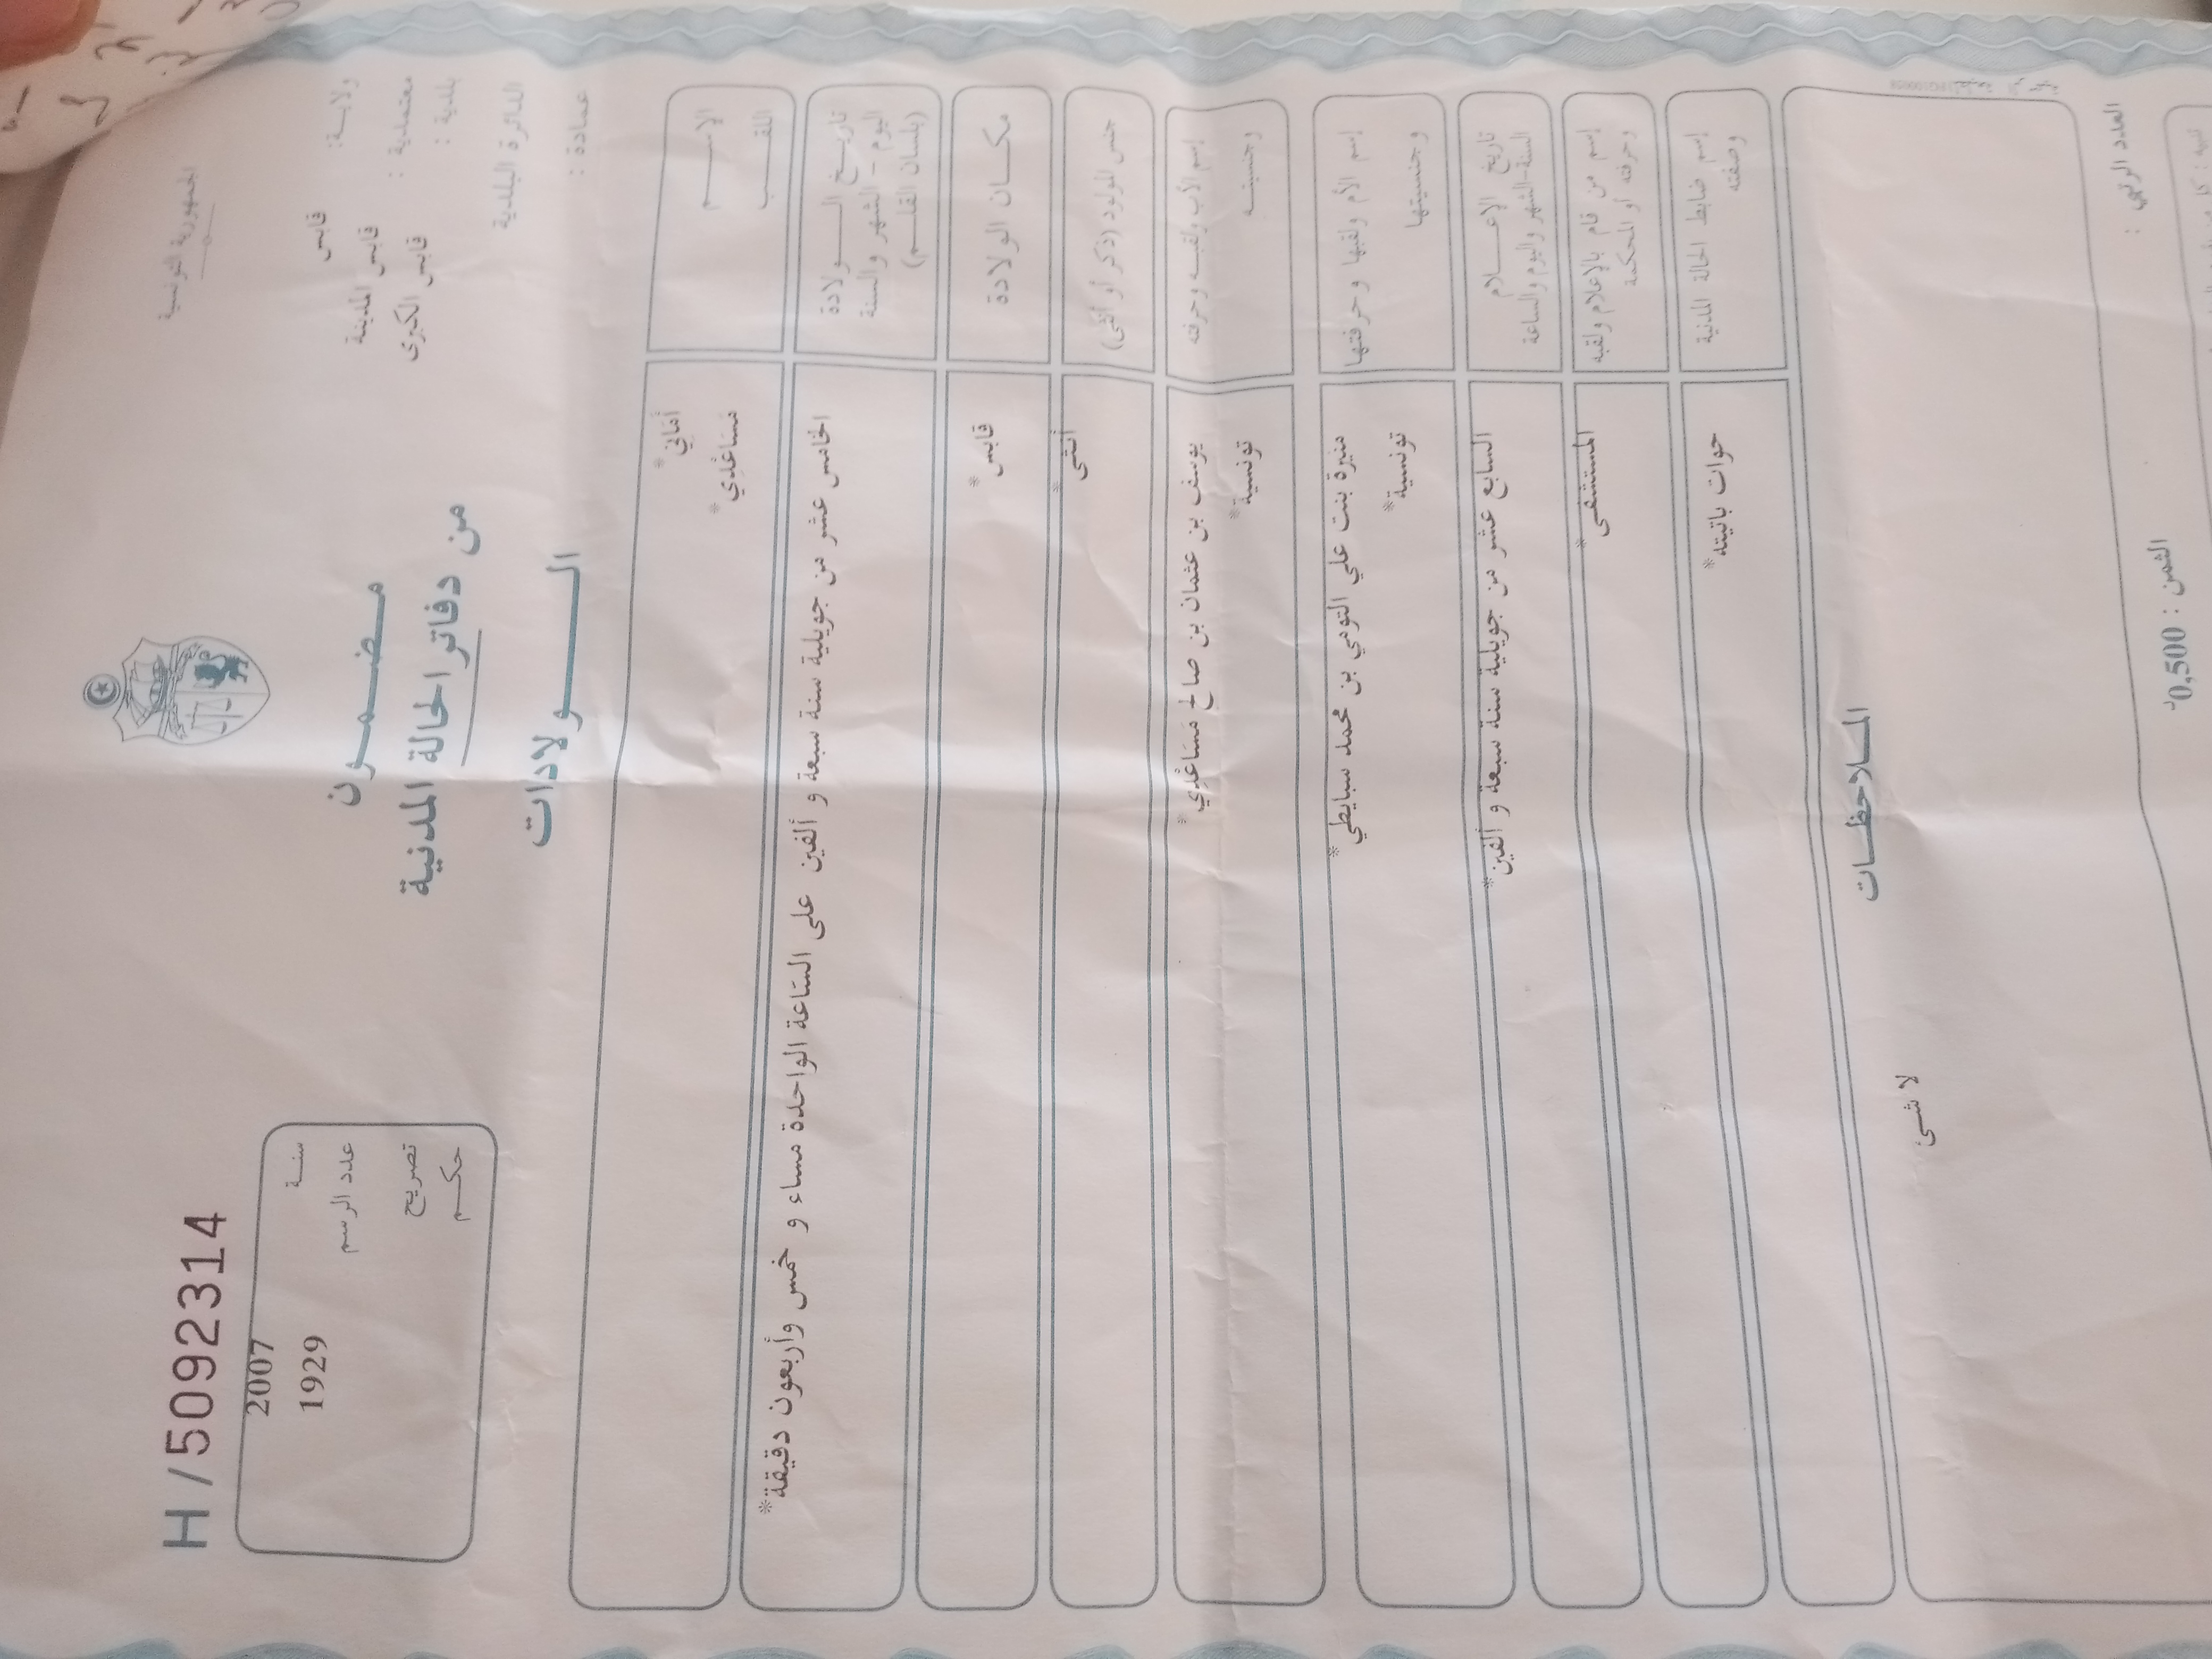 الجمهورية التونسية
H / 5092314
سنة 2007
عدد الرسم 1929
تصريح
حكم
ولاية: قابس
معتمدية : قابس المدينة
بلدية : قابس الكبرى
الدائرة البلدية
عمادة :
مضمون
من دفاتر الحالة المدنية
الولادات
الإسم أماني*
اللقب مساعدي*
تاريخ الولادة
اليوم - الشهر والسنة
(بلسان القلم)
الخامس عشر من جويلية سنة سبعة و ألفين على الساعة الواحدة مساء و خمس وأربعون دقيقة*
مكان الولادة قابس*
جنس المولود (ذكر أو أنثى) أنثى*
إسم الأب ولقبه وحرفته يوسف بن عثمان بن صالح مساعدي*
وجنسيته تونسية*
إسم الأم ولقبها وحرفتها منيرة بنت علي التومي بن محمد سبايطي*
وجنسيتها تونسية*
تاريخ الإعلام
السنة-الشهر واليوم والساعة
السابع عشر من جويلية سنة سبعة و ألفين*
إسم من قام بالإعلام ولقبه
وحرفته أو المحكمة
المستشفى*
إسم ضابط الحالة المدنية
وصفته
حوات باتيته*
الملاحظات
لا شئ
العدد الرتبي :
الثمن : 0,500د